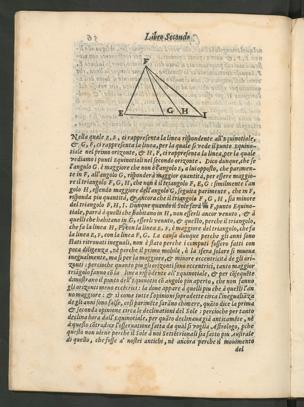 Libro Secondo
F
E G H I
Nella quale E, F, ci rappresenta la linea rispondente all'equinottiale,
& G, F, ci rappresenta la linea, per la quale si vede il punto Equinot-
tiale nel primo orizonte, & H, F, ci rappresenta la linea, per la quale
vediamo i punti Equinottiali nel secondo orizonte. Dico dunque, che se
l'angolo G, è maggiore, che non è l'angolo
te in F, all'angolo G, risponderà maggior quantità, per essere maggio-
re il triangolo F, G, H, che non è il triangolo F, E, G: similmente l'an-
golo H, essendo maggiore dell'angolo G, seguita parimente, che in F,
risponda piu quantità, & ancora che il triangolo F, G, H, sia minore
del triangolo F, H, I. Dunque quando il Sole sarà in punto Equinot-
tiale, parrà à quelli che habitano in H, non esservi ancor venuto, & à
quelli che habitano in G, esservi venuto
che fa la linea H, F, con la linea E, F, è maggiore del triangolo, che fa
la linea E, F, con la linea F, G. La causa dunque perche gli anni sono
stati ritrovati ineguali, non è stato perche i computi fussero fatti con
poca diligenza, nè perche il primo mobile, ò la sfera solare si muova
inegualmente, ma si per la maggiore, & minore eccentricità de gli ori-
zonti: percioche quanto piu gli orizonti sono eccentrici, tanto maggior
triangolo fanno con la linea rispondente all'equinottiale, & per conseguente
dimostrano il punto dell'equinottio con angolo piu aperto, che non fanno
gli orizonti meno eccentrici: là dove appare à quelli piu che à questi l'an-
no maggiore: & si come tutte l'opinioni sopradette circa l'inegualità
de gli anni sono false, così parimente saranno chimere, quanto dice la prima
& seconda opinione circa le declinationi del Sole: percioche per tanto
declina hora dall'Equinottiale, per quanto declinava già anticamente, nè
à questo contradice l'osservatione fatta da qual si voglia Astrologo, perche
questo non viene perche il Sole à noi Settentrionali sia fatto piu Australe
di quello, che fosse a' nostri antichi, nè ancora perche il movimento
del